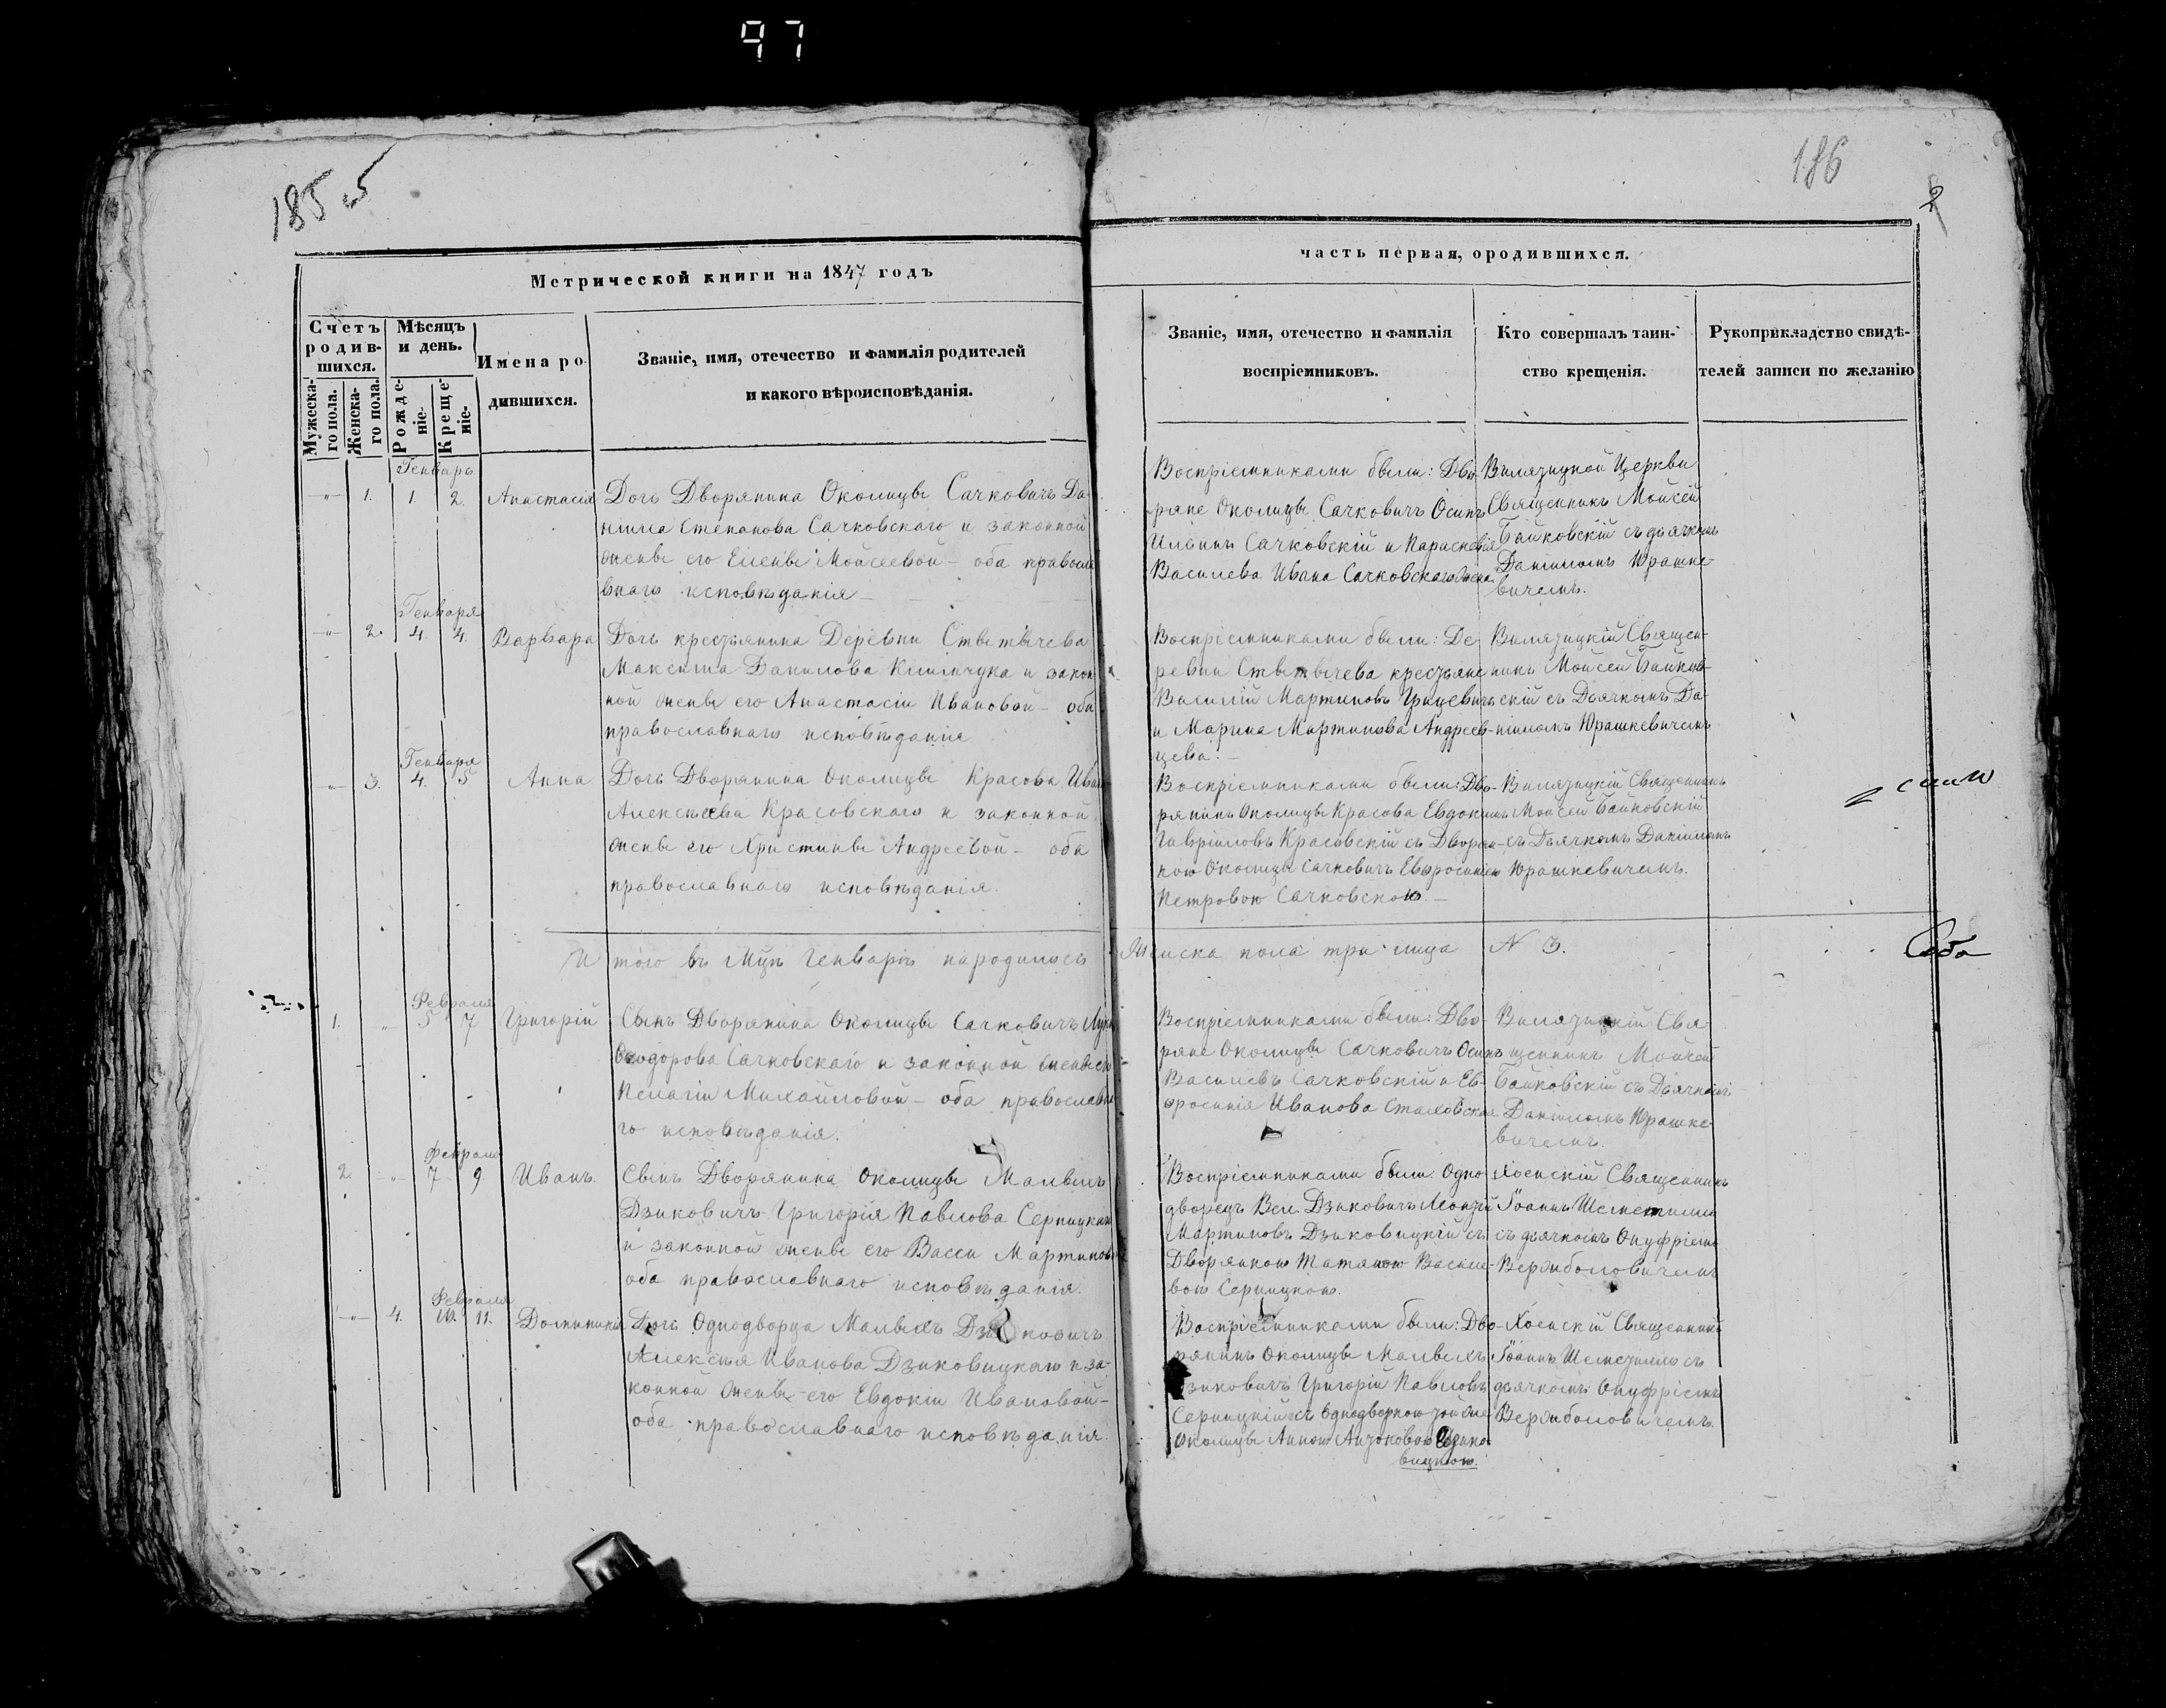 97
185 об
186
2
Метрической книги на 1847 годъ
часть первая, ородившихся.
Счетъ родив-шихся.
Мужеска-го пола.
Женска-го пола.
Мѣсяцъ и день.
Рожде-ніе.
Креще-ніе.
Имена ро-
дившихся.
Званіе, имя, отечество и фамилія родителей
и какого вѣроисповѣданія.
Званіе, имя, отечество и фамилія
воспріемниковъ.
Кто совершалъ таин-
ство крещенія.
Рукоприкладство свидѣ-
телей записи по желанію
Генварь
1. 1. 2. Анастасія
Дочь Дворянина Околицы Сачковичъ Да-
ніила Степанова Сачковскаго и законной
жены его Елены Моисеевой – оба правосла
внаго исповѣданія
Воспріемниками были: Дво-
ряне Околицы Сачковичъ Осипъ
Ильинъ Сачковскій и Параскевія
Василева Ивана Сачковскаго жена
Вилязицкой Церкви
Священникъ Моисей
Байковскій съ дьячкомъ
Даніиломъ Юрашке-
вичемъ.
Генваря
2. 4. 4. Варвара
Дочь крестьянина Деревни Стытычева
Максима Данилова Климчука и закон
ной жены его Анастасіи Ивановой – оба
православнаго исповѣданія
Воспріемниками были: Де-
ревни Стытычева крестьяне
Василій Мартиновъ Грицевичъ
и Марина Мартинова Андреев-
цева. –
Вилязицкій Священ-
никъ Моисей Байков-
скій съ Дьячкомъ Да-
ніиломъ Юрашкевичемъ
Генваря
3. 4. 5 Анна
Дочь Дворянина Околицы Красова Ивана
Алексѣева Красовскаго и законной
жены его Христины Андреевой – оба
православнаго исповѣданія.
Воспріемниками были: Дво-
рянинъ Околицы Красова Евдокимъ
Гавріиловъ Красовскій съ Дворян-
кою Околицы Сачковичъ Евфросиніею
Петровою Сачковскою. –
Вилязицкій Священникъ
Моисей Байковскій
съ Дьячкомъ Даніиломъ
Юрашкевичемъ.
Итого въ Мцѣ Генварѣ народилось Женска пола три лица N 3.
Февраля
1. 5 7 Григорій
Сынъ Дворянина Околицы Сачковичъ Луки
Ѳеодорова Сачковскаго и законной жены его
Пелагіи Михайловой – оба православна
го исповѣданія.
Воспріемниками были: Дво-
ряне Околицы Сачковичъ Осипъ
Василевъ Сачковскій и Ев-
фросинія Иванова
Вилязицкій Свя-
щенникъ Моисей
Байковскій съ Дьячкомъ
Даніиломъ Юрашке-
вичемъ.
Февраля
2 7 9 Иванъ.
Сынъ Дворянина Околицы Малыхъ
Дзиковичъ Григорія Павлова Серницкаго
и законной жены его Васси Мартиновой
оба православнаго исповѣданія.
Воспріемниками были: Одно-
дворецъ Вел. Дзиковичъ
Мартиновъ Дзиковицкій съ
Дворянкою Татяною Василе-
вою Серницкою.
Хоенскій Священникъ
Іоаннъ Шеметилло
съ дьячкомъ Онуфріемъ
Верлиболовичемъ
Февраля
4. 10. 11. Доминикія
Дочь Однодворца Малыхъ Дзиковичъ
Алексѣя Иванова Дзиковицкаго и за-
конной жены его Евдокіи Ивановой –
оба православнаго исповѣданія.
Воспріемниками были: Дво-
рянинъ Околицы Малыхъ
Дзиковичъ Григорій Павловъ
Серницкій съ Однодворкою той же
Околицы Анною Дзико-
вицкою.
Хоенскій Священникъ
Іоаннъ Шеметилло съ
дьячкомъ Онуфріемъ
Верлиболовичемъ.